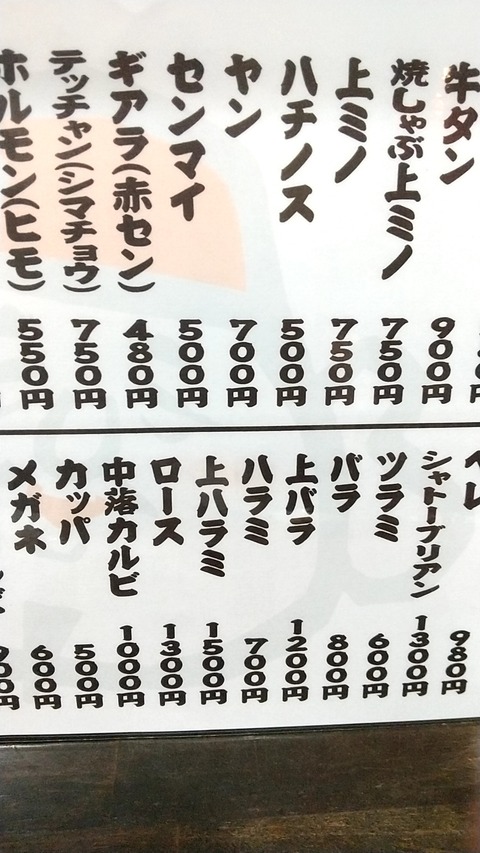 牛タン 900円
焼しゃぶ上ミノ 750円
上ミノ 750円
ハチノス 500円
ヤン 700円
センマイ 500円
ギアラ(赤セン) 480円
テッチャン(シマチョウ) 750円
ホルモン(ヒモ) 550円
ヘレ 980円
シャトーブリアン 1300円
ツラミ 600円
バラ 800円
上バラ 1200円
ハラミ 700円
上ハラミ 1500円
ロース 1300円
中落カルビ 1000円
カッパ 500円
メガネ 600円
900円